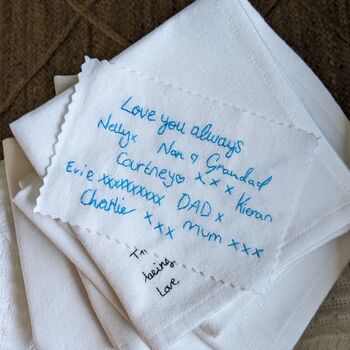 Love you always
Nellyx Nan & Grandad
Courtney♡ x x x Kieran
Evie xxxxxxxxx DAD x
Charlie x x x mum xxx
being,
Love